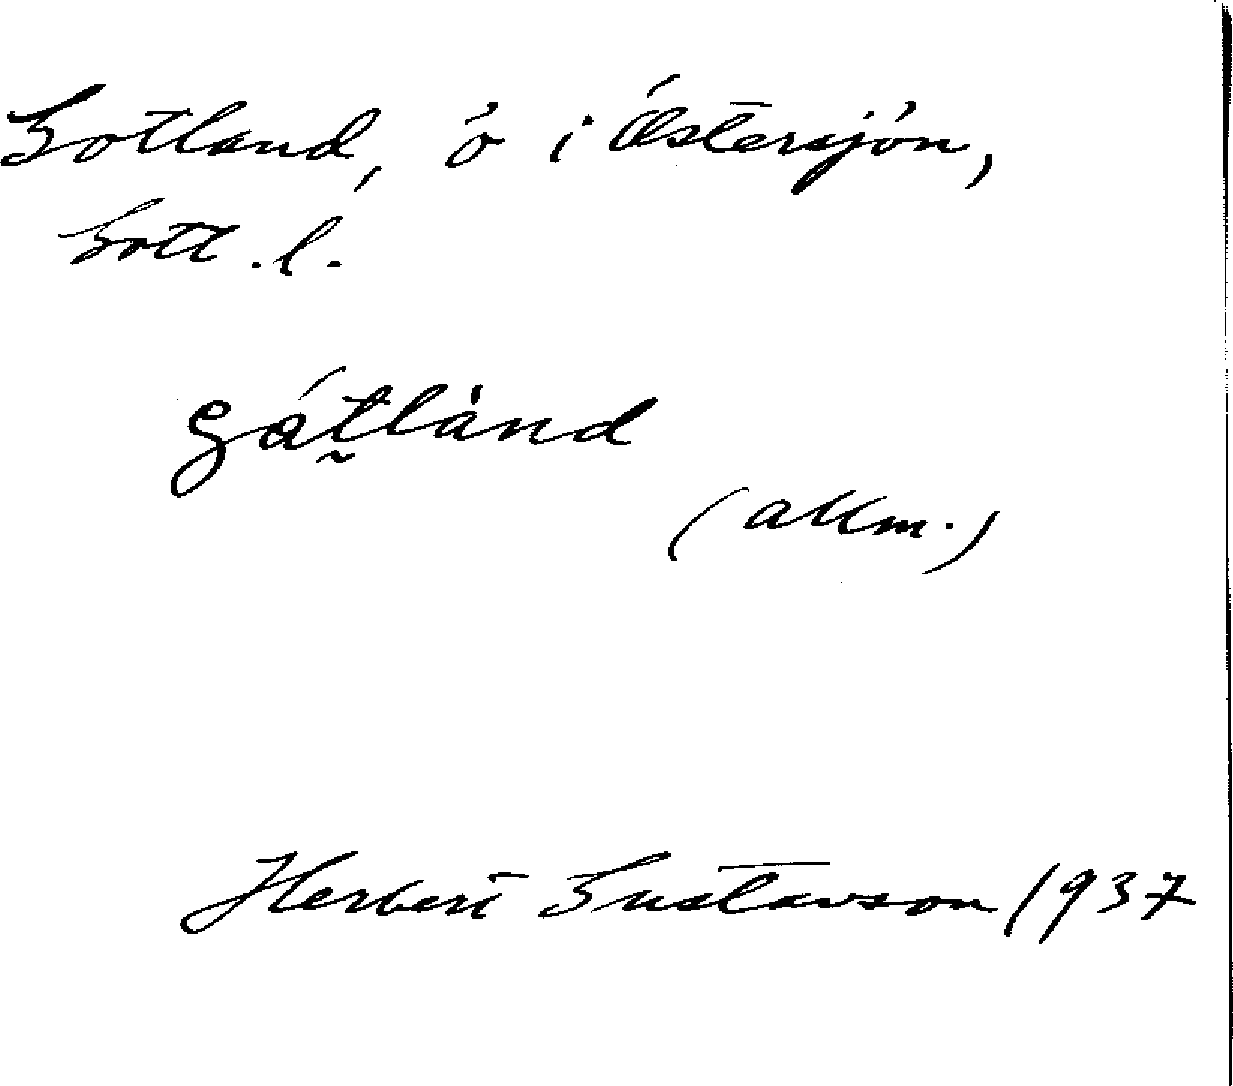 Gotland, ö i Östersjön,
Gotl. l.
gátlànd
(allm.)
Herbert Gustavson 1937